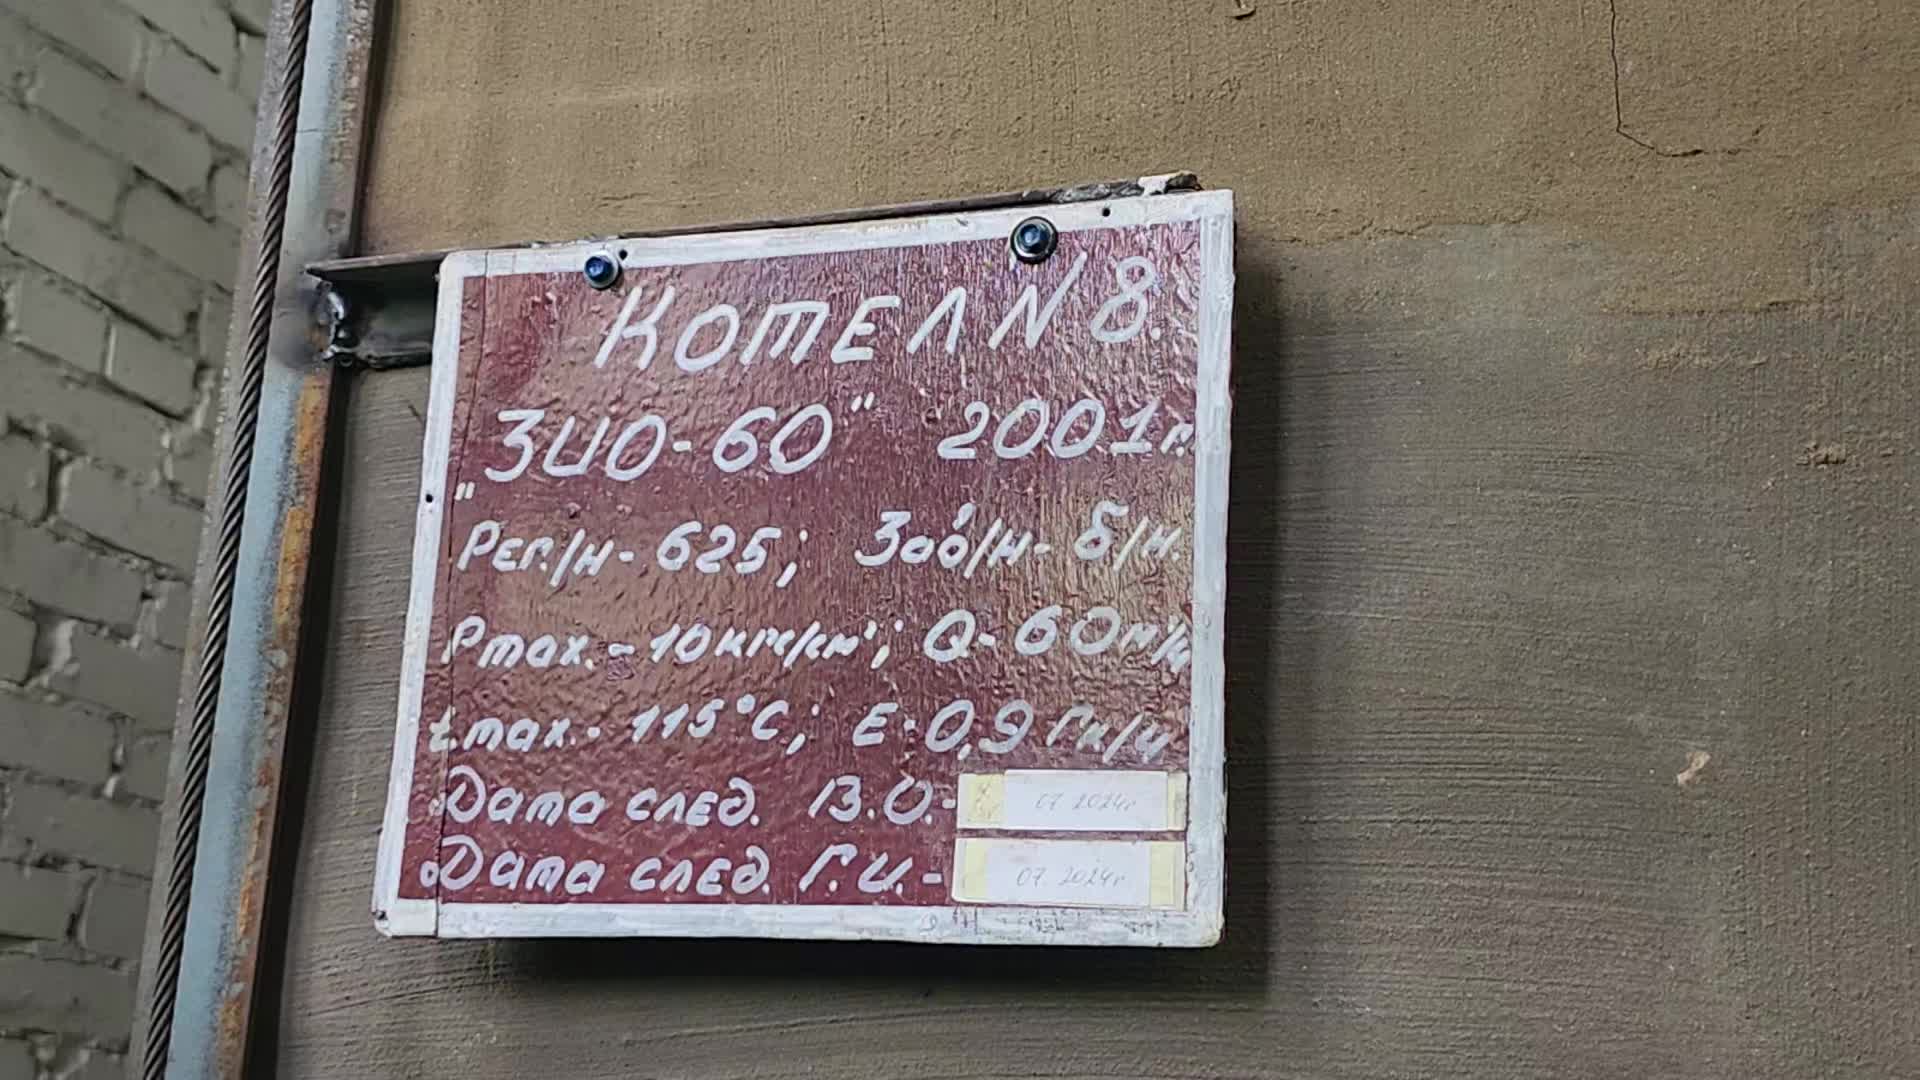 Котел N 8.
"ЗИО-60" 2001г.
Рег./н- 625; Зав/н- б/н.
Pmax.- 10 кгс/см²; Q- 60 м³/ч
tmax.- 115°C; E- 0,9 Гк/ч
Дата след. В.О.- 07.2024г
Дата след. Г.И.- 07.2024г